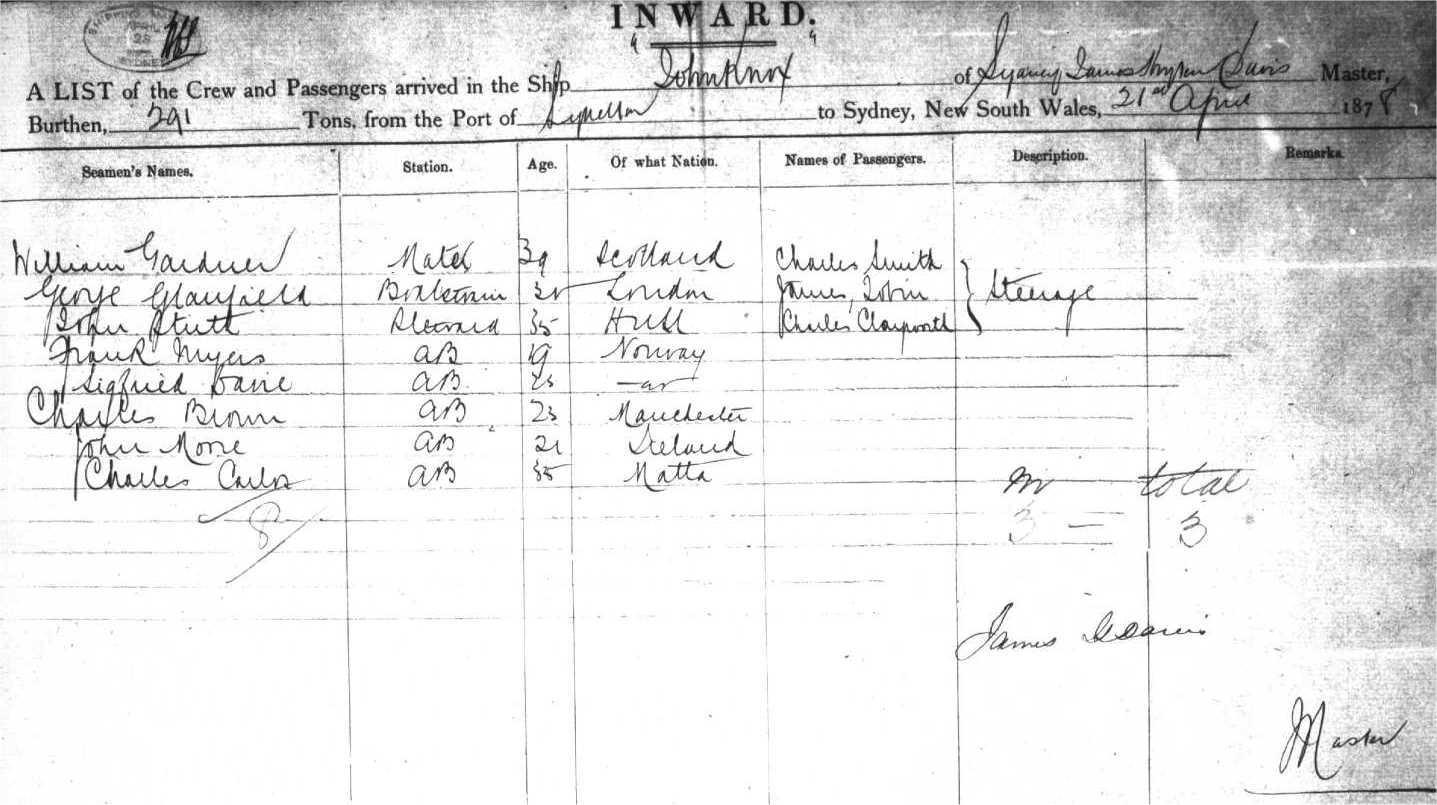 INWARD.
A LIST of the Crew and Passengers arrived in the Ship "John Knox" of Sydney James Davis Master,
Burthen, 291 Tons, from the Port of to Sydney, New South Wales, 21st April 1878
Seamen's Names. Station. Age. Of what Nation. Names of Passengers. Description. Remarks.
William Gardner Mate 39 Scotland Charles Smith
George Glanfield Boatswain London James Tobin Steerage
John Stutt Steward 35 Hull Charles Clayworth
Frank Myers AB 19 Norway
Sigfried AB
Charles Brown AB 23 Manchester
John AB 21 Ireland
Charles Carlos AB 35 Malta
8 M total
3 — 3
James Davis
Master